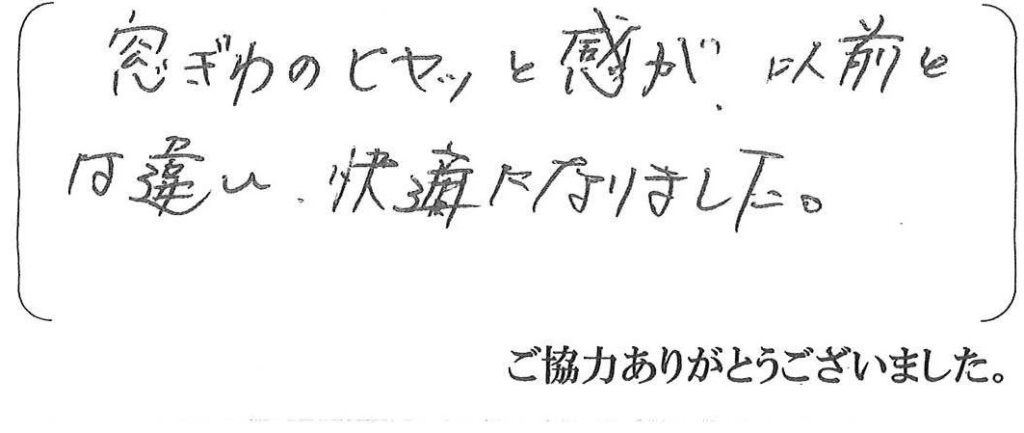 窓ぎわのヒヤッと感が、以前と
は違い、快適になりました。
ご協力ありがとうございました。